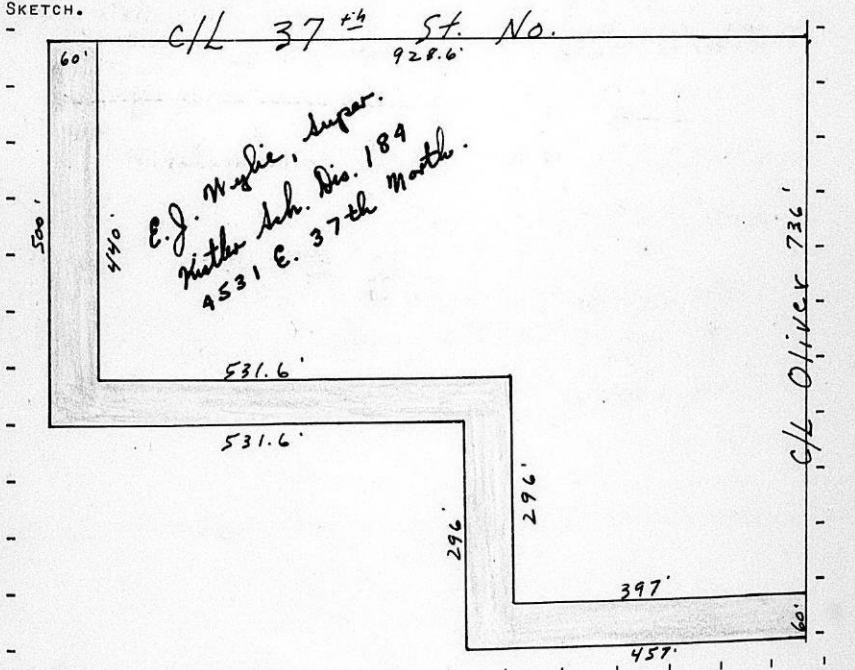 SKETCH.
C/L 37th St. No.
60'
928.6'
E.J. Wylie, Super.
Kistler Sch. Dis. 184
4531 E. 37th North.
500'
440'
C/L Oliver 736'
531.6'
531.6'
296'
296'
397'
60'
457'